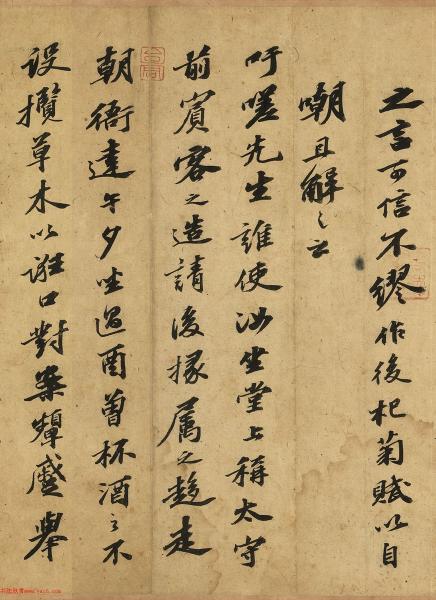 之言可信不繆作後杞菊賦以自
嘲且解之云
吁嗟先生誰使汝坐堂上稱太守
前賓客之造請後掾屬之趍走
朝衙達午夕坐過酉曾杯酒之不
設攬草木以誑口對案顰蹙舉
书法欣赏www.yac8.com